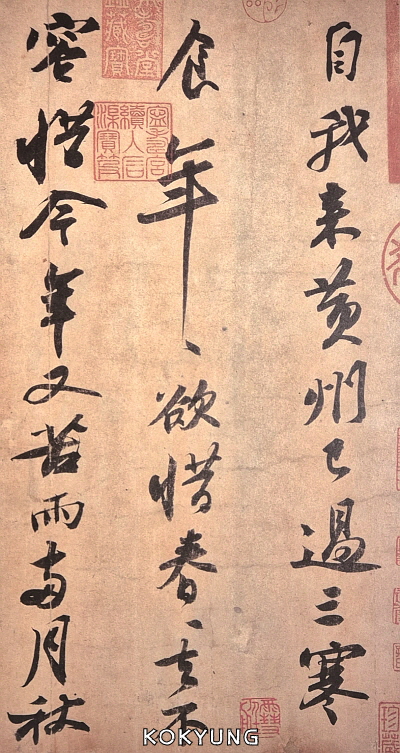 自我來黃州已過三寒
食年〻欲惜春〻去不
容惜今年又苦雨兩月秋
KOKYUNG